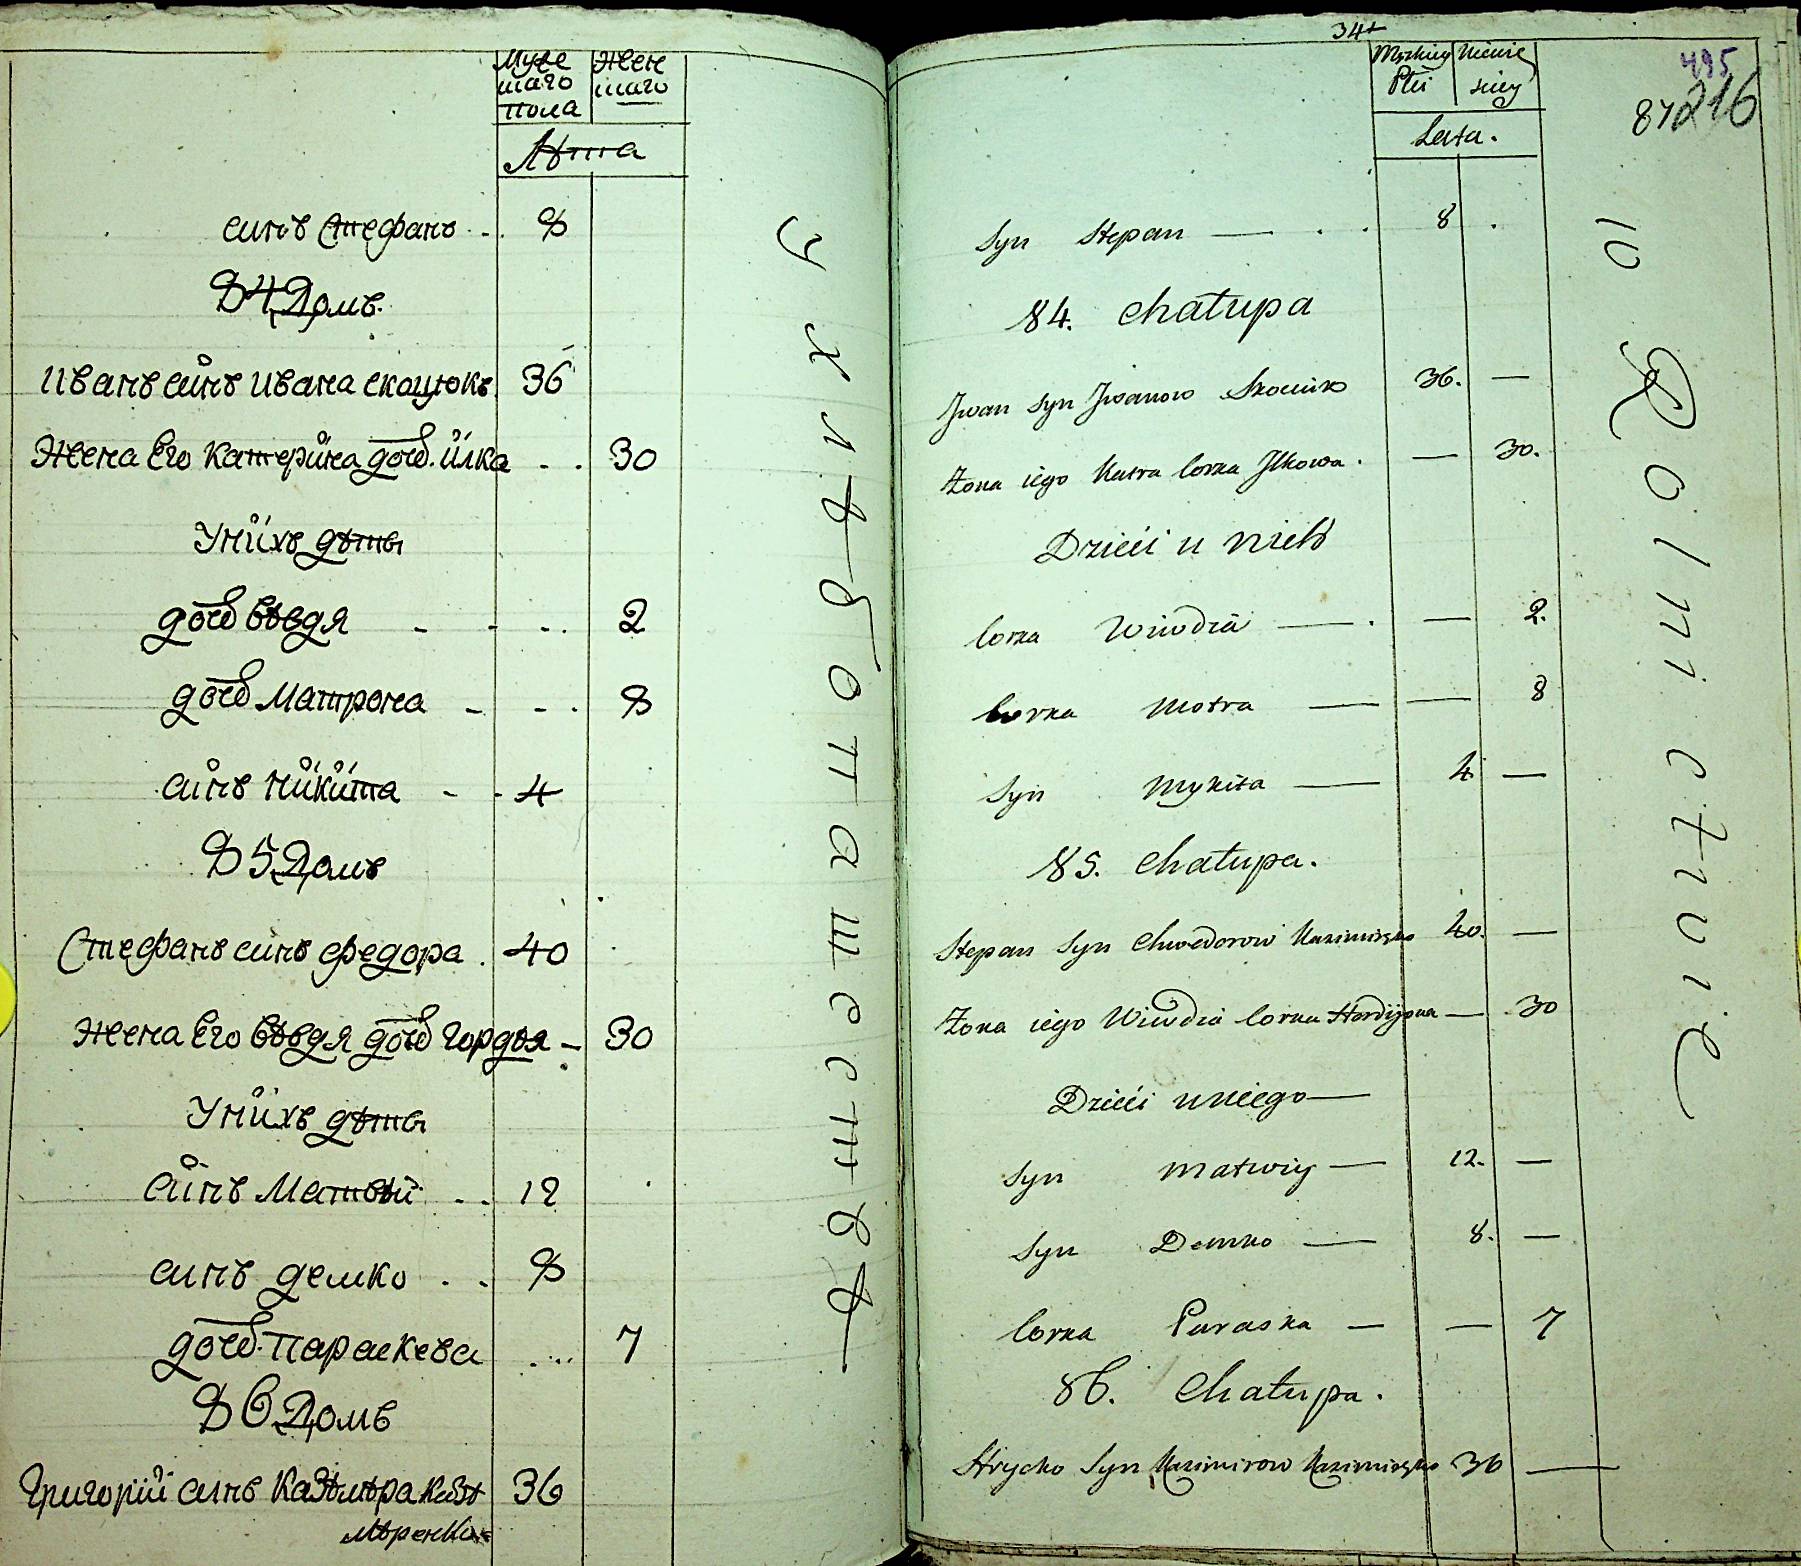 Муже Жен
скаго скаго
пола
Лѣта
синъ Стефанъ 8
84 Домъ.
Иванъ синъ Ивана скоцюкъ 36
Жена Его Катерина дочь. илка 30
Унихъ дѣты
дочь Вѣвдя 2
дочь Матрона 8
синъ Никита 4
85 Домъ
Стефанъ синъ федора 40
Жена Его Вѣвдя дочь Гордѣя 30
Унихъ дѣты
синъ Матвѣй 12
синъ демко 8
дочь Параскева 7
86 Домъ
Григорій синъ Казѣмѣра Казѣ 36
мѣренко
У хлѣботашествѣ
34
Męzkiey Niewie
Płci skiey
Lata.
495
87 216
Syn Stepan 8
84. Chałupa
Jwan Syn Jwanow Skociuk 36.
Żona iego Katra Corka Jlkowa. 30.
Dzieći u nich
Corka Wiwdia 2.
Corka Motra 8
Syn Mykita 4
85. Chałupa.
Stepan Syn Chwedorow Kazimirsko 40.
Żona iego Wiwdia Corka Hordijowa 30
Dzieći uniego
Syn Matwiy 12.
Syn Demko 8.
Corka Paraska 7
86. Chałupa.
Hrycko Syn Kazimirow Kazimirsko 36
w Rolnictwie